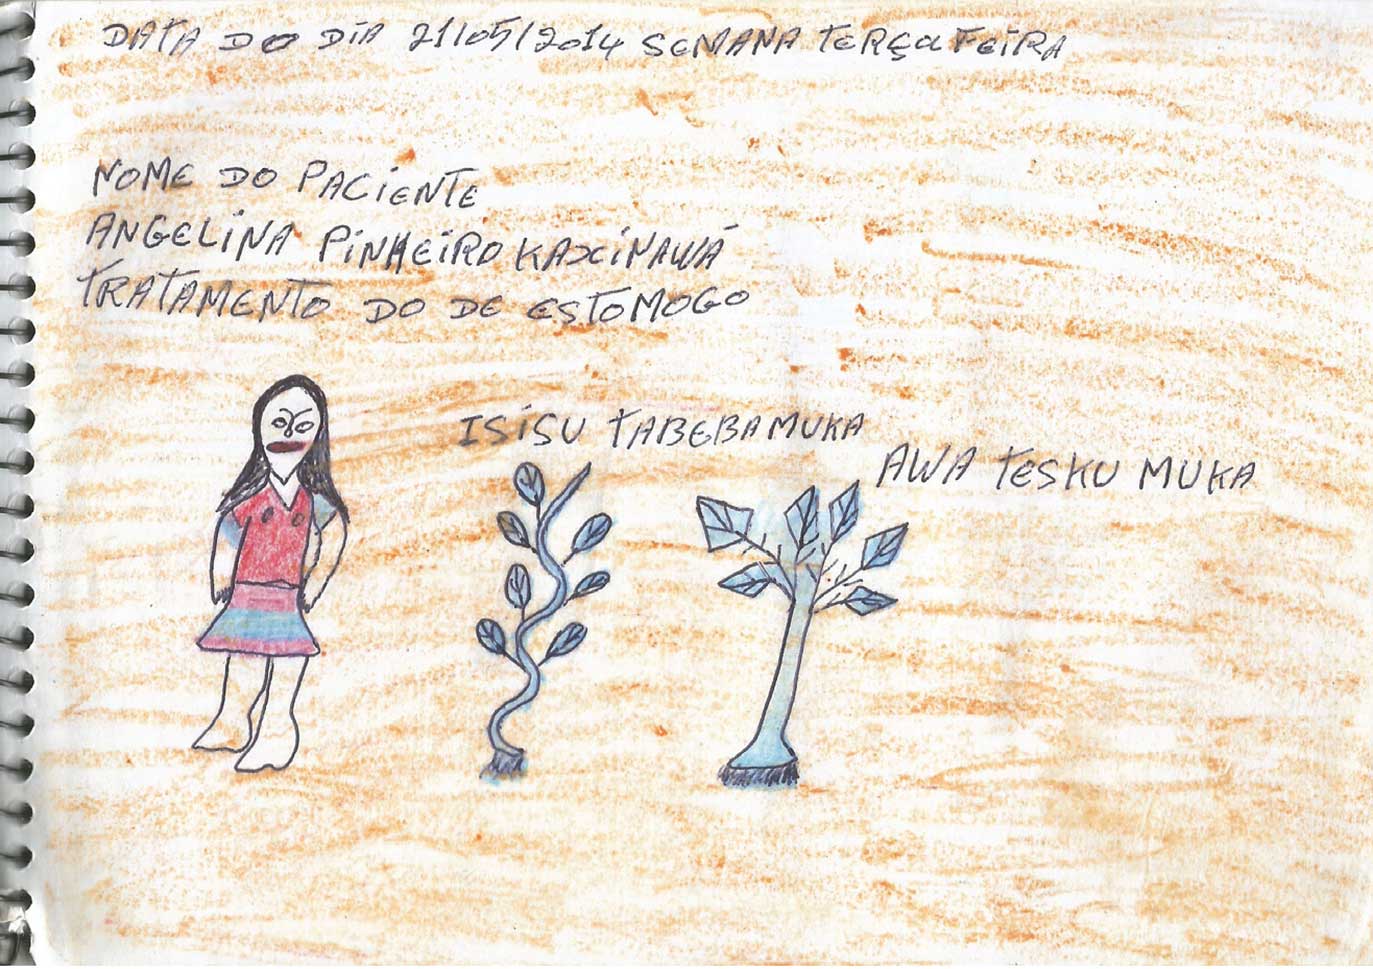 DATA DO DIA 21/05/2014 SEMANA TERÇA FEIRA
NOME DO PACIENTE
ANGELINA PINHEIRO KAXINAWÁ
TRATAMENTO DO DE ESTOMOGO
ISISU TABEBA MUKA
AWA TESKU MUKA